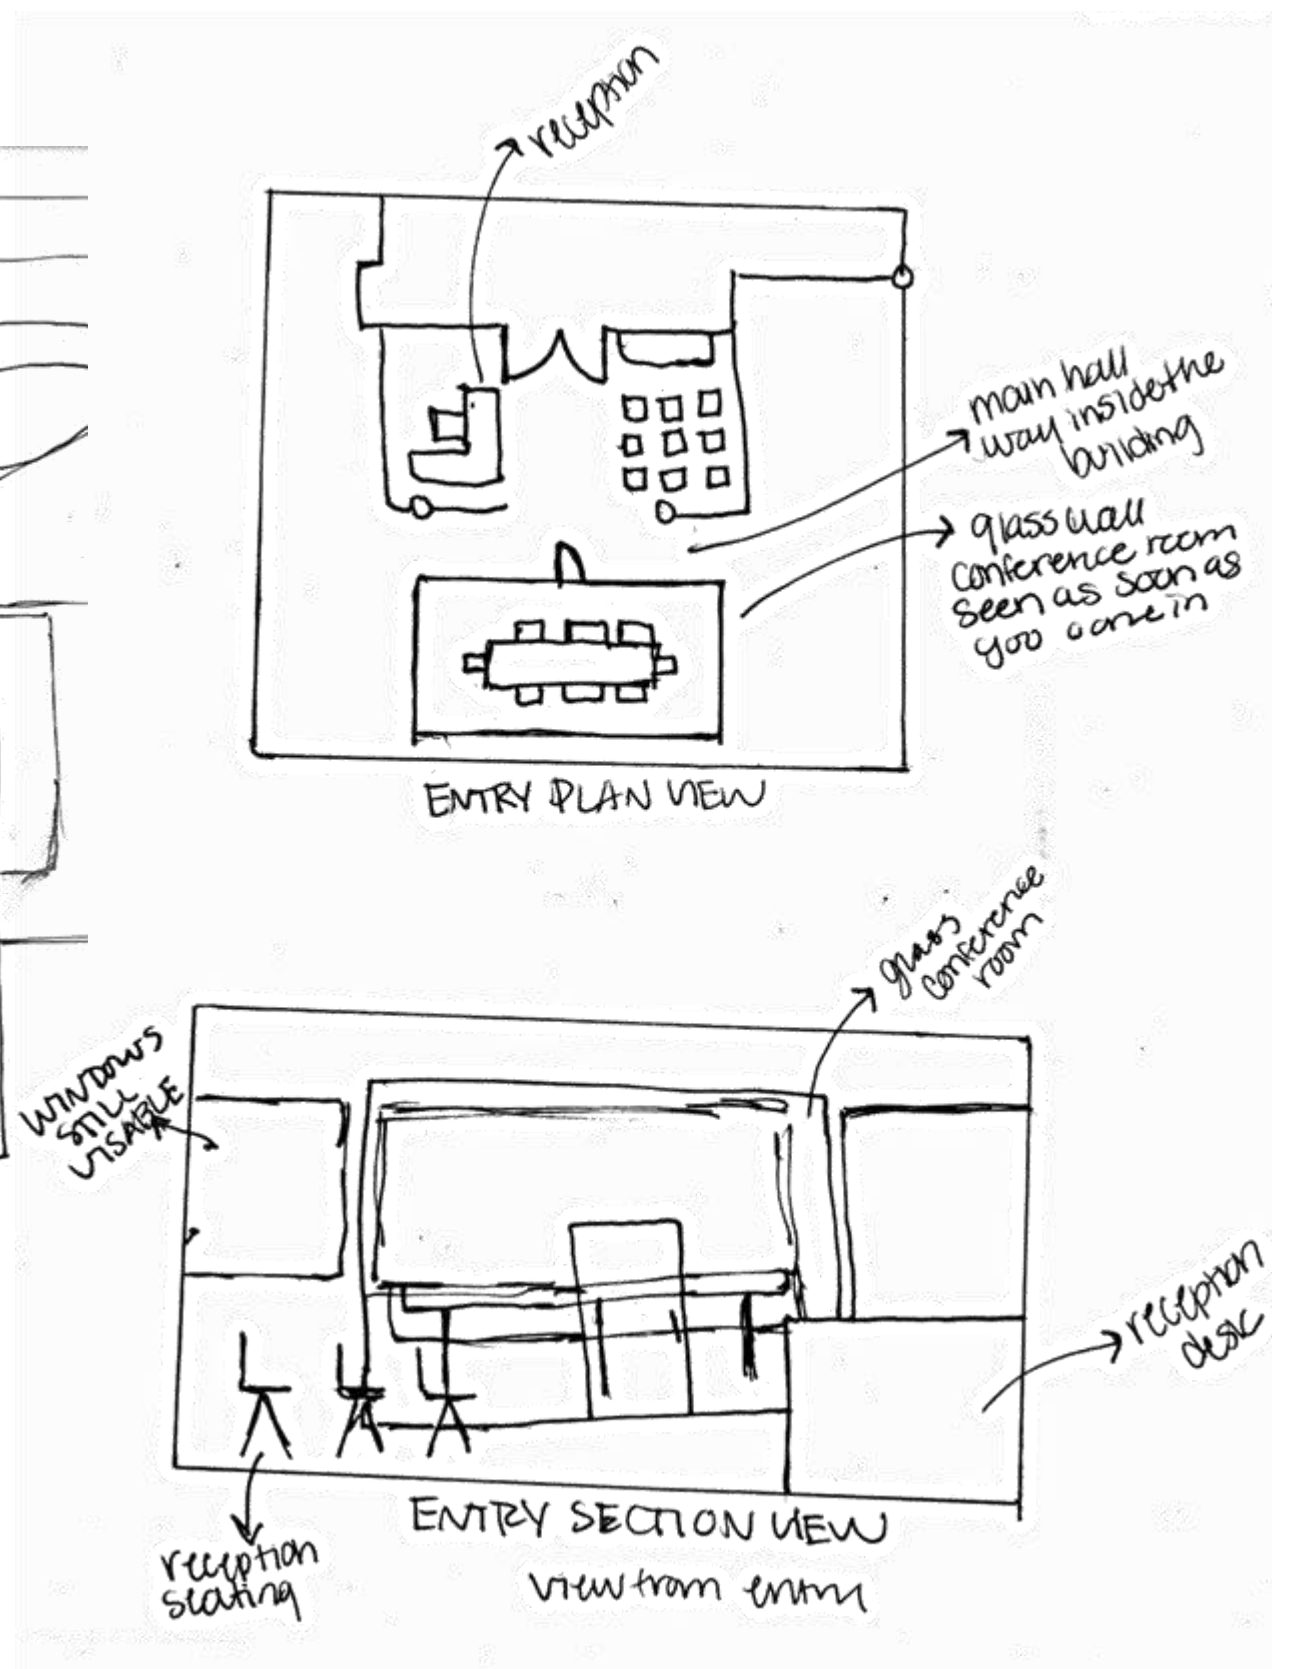 reception
main hall
way inside the
building
glass wall
conference room
seen as soon as
you come in
ENTRY PLAN VIEW
glass
conference
room
WINDOWS
STILL
VISABLE
reception
desk
reception
seating
ENTRY SECTION VIEW
view from entry